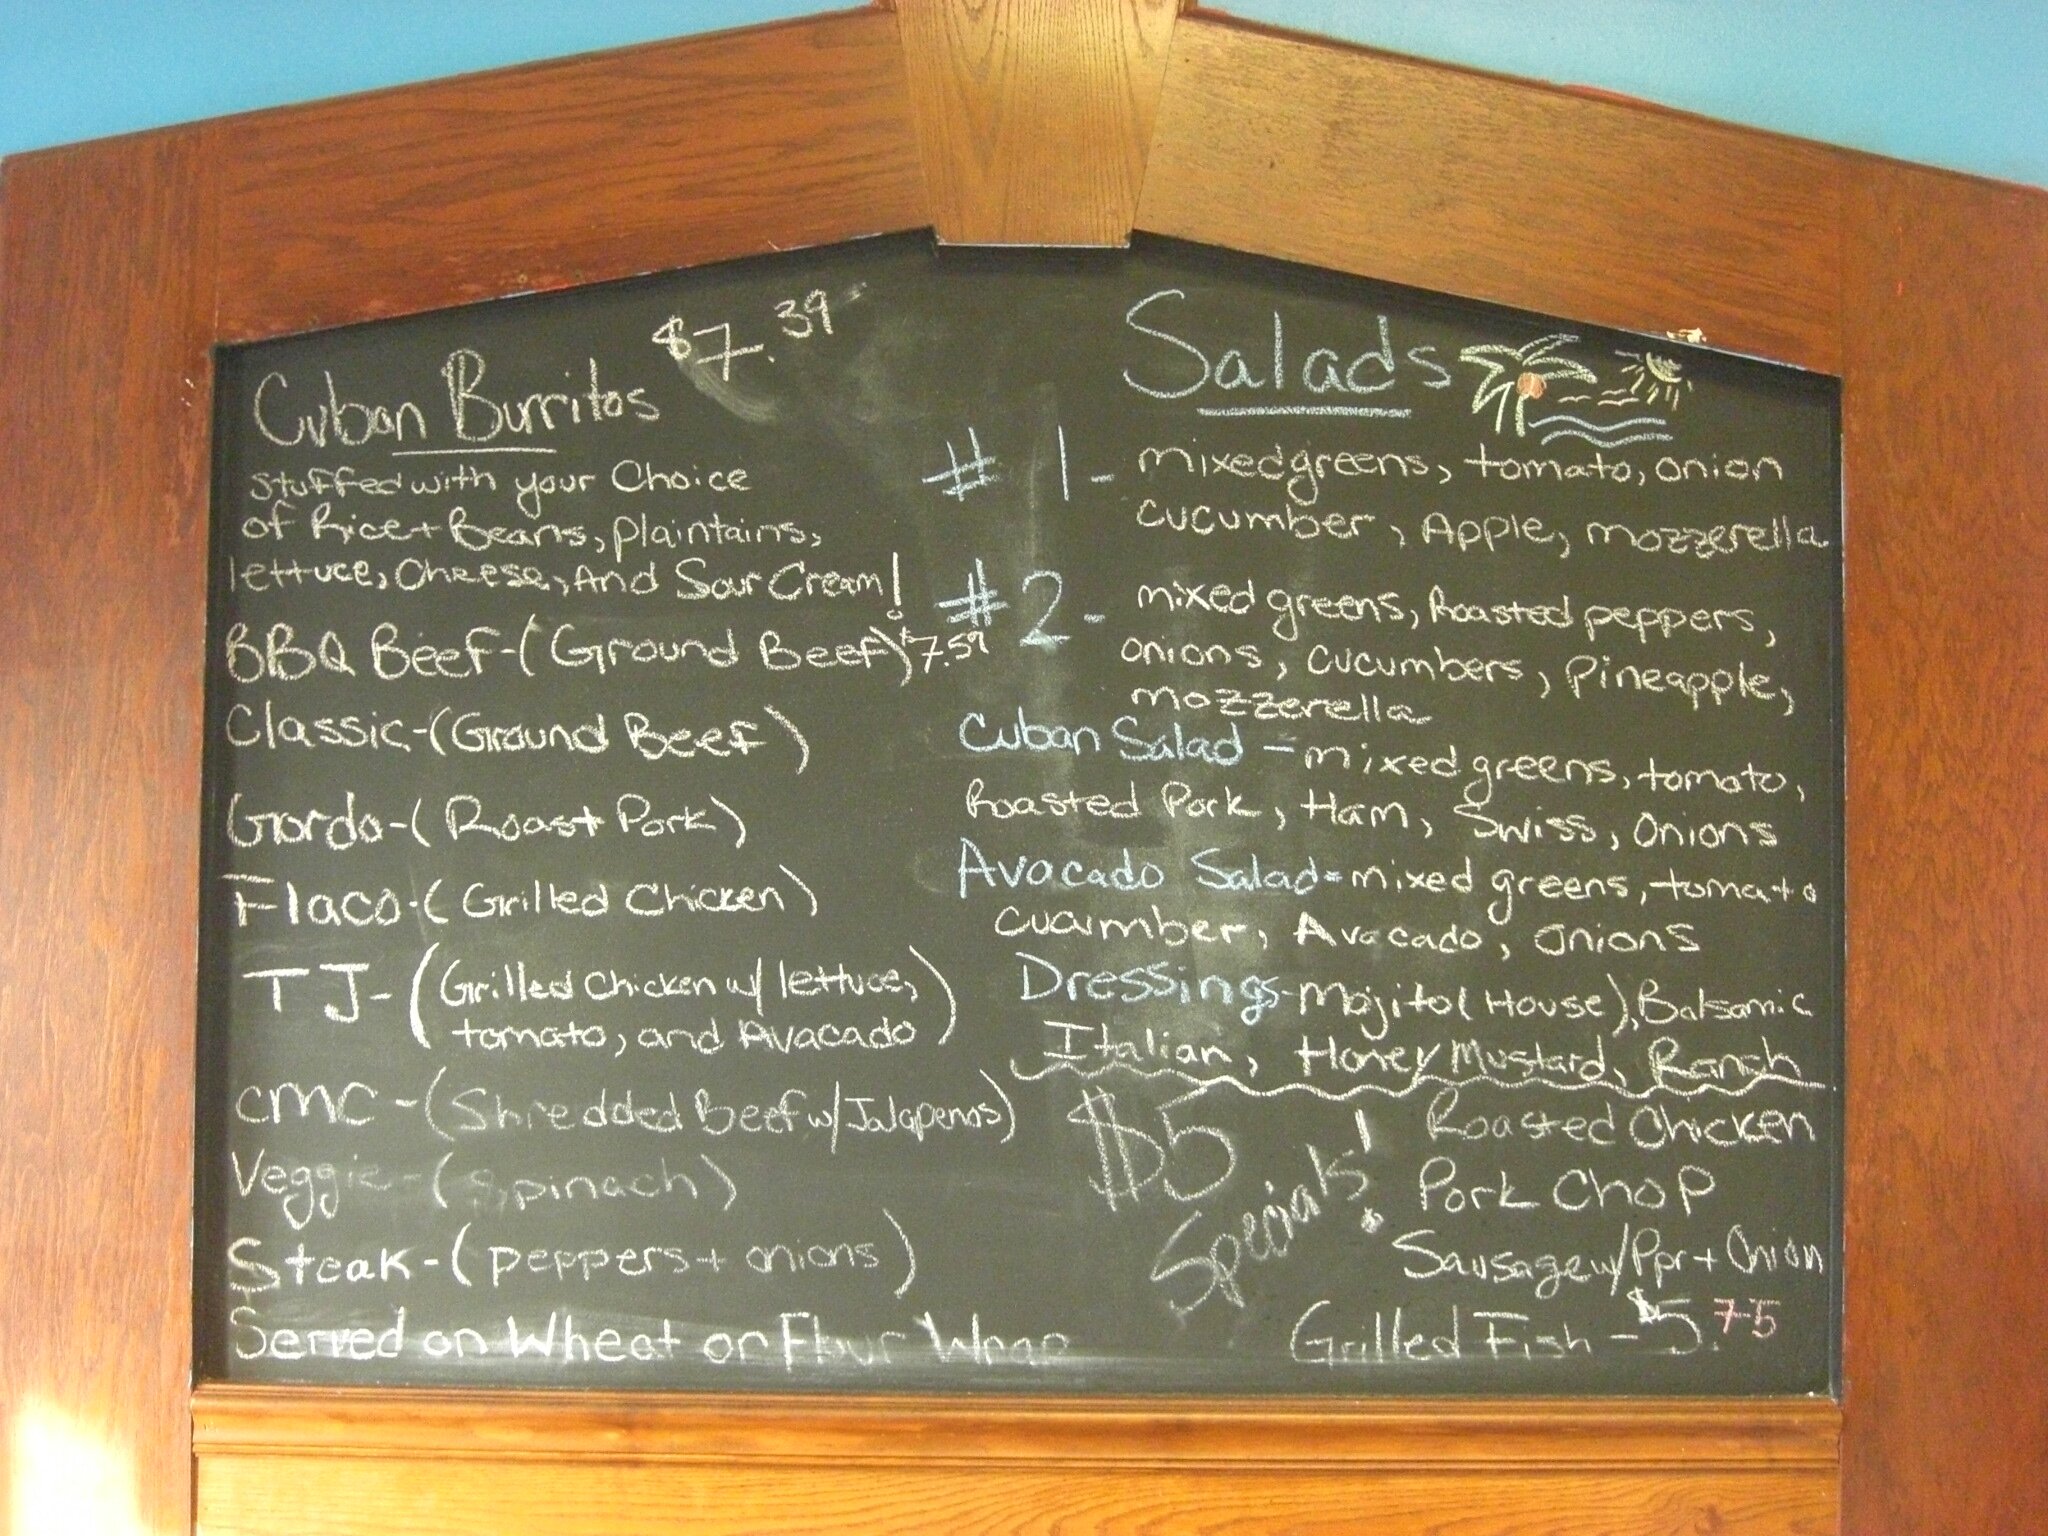 Cuban Burritos $7.39
Stuffed with your Choice
of Rice + Beans, plaintains,
lettuce, Cheese, And Sour Cream!
BBQ Beef-(Ground Beef) $7.59
Classic-(Ground Beef)
Gordo-(Roast Pork)
Flaco-(Grilled Chicken)
TJ-(Grilled Chicken w/ lettuce,
tomato, and Avacado)
CMC-(Shredded Beef w/Jalapenos)
Veggie-(Spinach)
Steak-(peppers + onions)
Served on Wheat or Flour Wrap
Salads
#1- mixed greens, tomato, onion
cucumber, Apple, mozzerella
#2- mixed greens, Roasted peppers,
onions, cucumbers, Pineapple,
mozzerella
Cuban Salad - mixed greens, tomato,
Roasted Pork, Ham, Swiss, Onions
Avocado Salad - mixed greens, tomato
cucumber, Avacado, onions
Dressings - Mojito (House), Balsamic
Italian, Honey Mustard, Ranch
$5 Specials!
Roasted Chicken
Pork Chop
Sausage w/ Ppr + Onion
Grilled Fish - $5.75